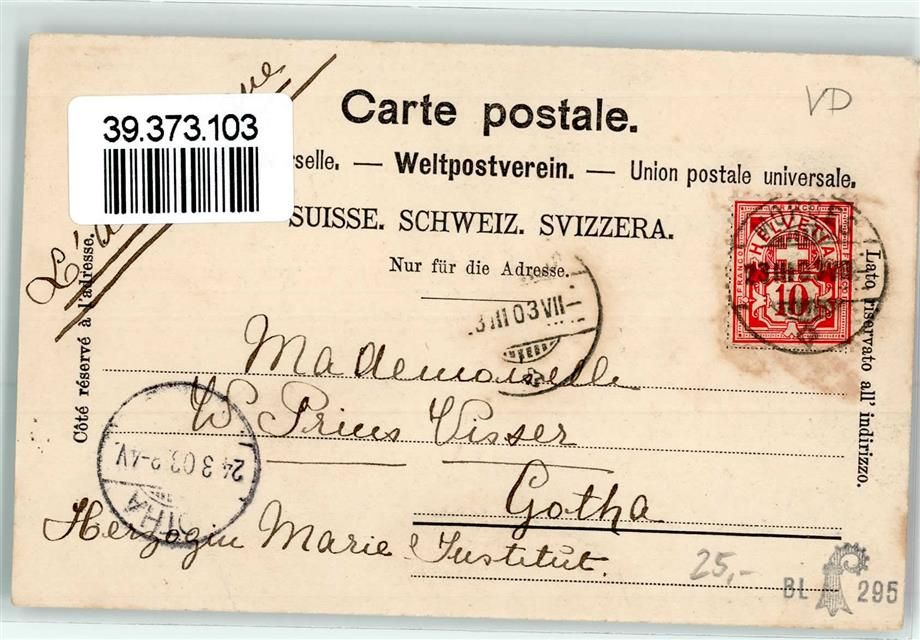 VD
Carte postale.
39.373.103
rselle. — Weltpostverein. — Union postale universale.
SUISSE. SCHWEIZ. SVIZZERA.
Nur für die Adresse.
Côté réservé à l'adresse.
Lato riservato all' indirizzo.
HELVETIA
FRANCO
10
3 III 03 VII
Mademoiselle
W Prins Visser
Gotha
Herzogin Marie Institut.
GOTHA
24 3 03 2-4V.
25,-
BL 295